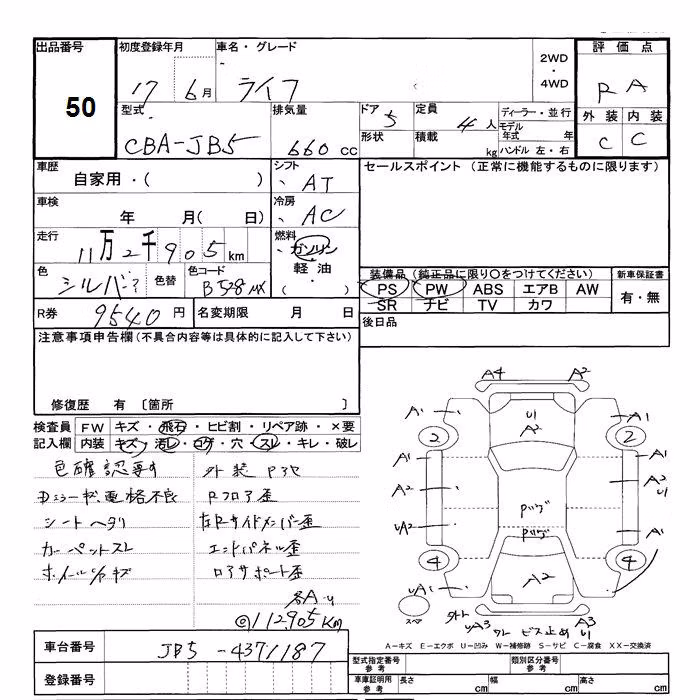 出品番号 初度登録年月 車名・グレード 2WD・4WD 評価点
50 17 6月 ライフ RA
型式 排気量 ドア 5 定員 4人 ディーラー・並行 外装 内装
CBA-JB5 660cc 形状 積載 kg モデル年式 年 C C
ハンドル 左・右
車歴 シフト セールスポイント (正常に機能するものに限ります)
自家用・( ) AT
車検 冷房
年 月( 日) AC
走行 燃料
11万2千905km ガソリン
色 色替 色コード 軽油 装備品 (純正品に限り○をつけてください) 新車保証書
シルバー B528MX ・( ) PS PW ABS エアB AW 有・無
R券 9540円 名変期限 月 日 SR ナビ TV カワ
注意事項申告欄 (不具合内容等は具体的に記入して下さい) 後日品
修復歴 有 〔箇所 〕
検査員 FW キズ・飛石・ヒビ割・リペア跡・×要
記入欄 内装 キズ・汚レ・コゲ・穴・スレ・キレ・破レ
色確認要す 外装
電格不良 Rフロア歪
シートヘタリ 左Rサイドメンバー歪
カーペットスレ エンドパネル歪
ホイールC/Pキズ ロアサポート歪
各A-U
@112905Km
A4 A2
A1 U1 A2 A1
2 2
A1 A1
A2 A2 U1
UA2 A1
4 4
UA1 A2 A1
UA3 ビス止め A3 U1
A-キズ E-エクボ U-凹み W-補修跡 S-サビ C-腐食 XX-交換済
車台番号 JB5-4371187
登録番号
型式指定番号 参考 類別区分番号 参考
車庫証明用 参考 長さ cm 幅 cm 高さ cm